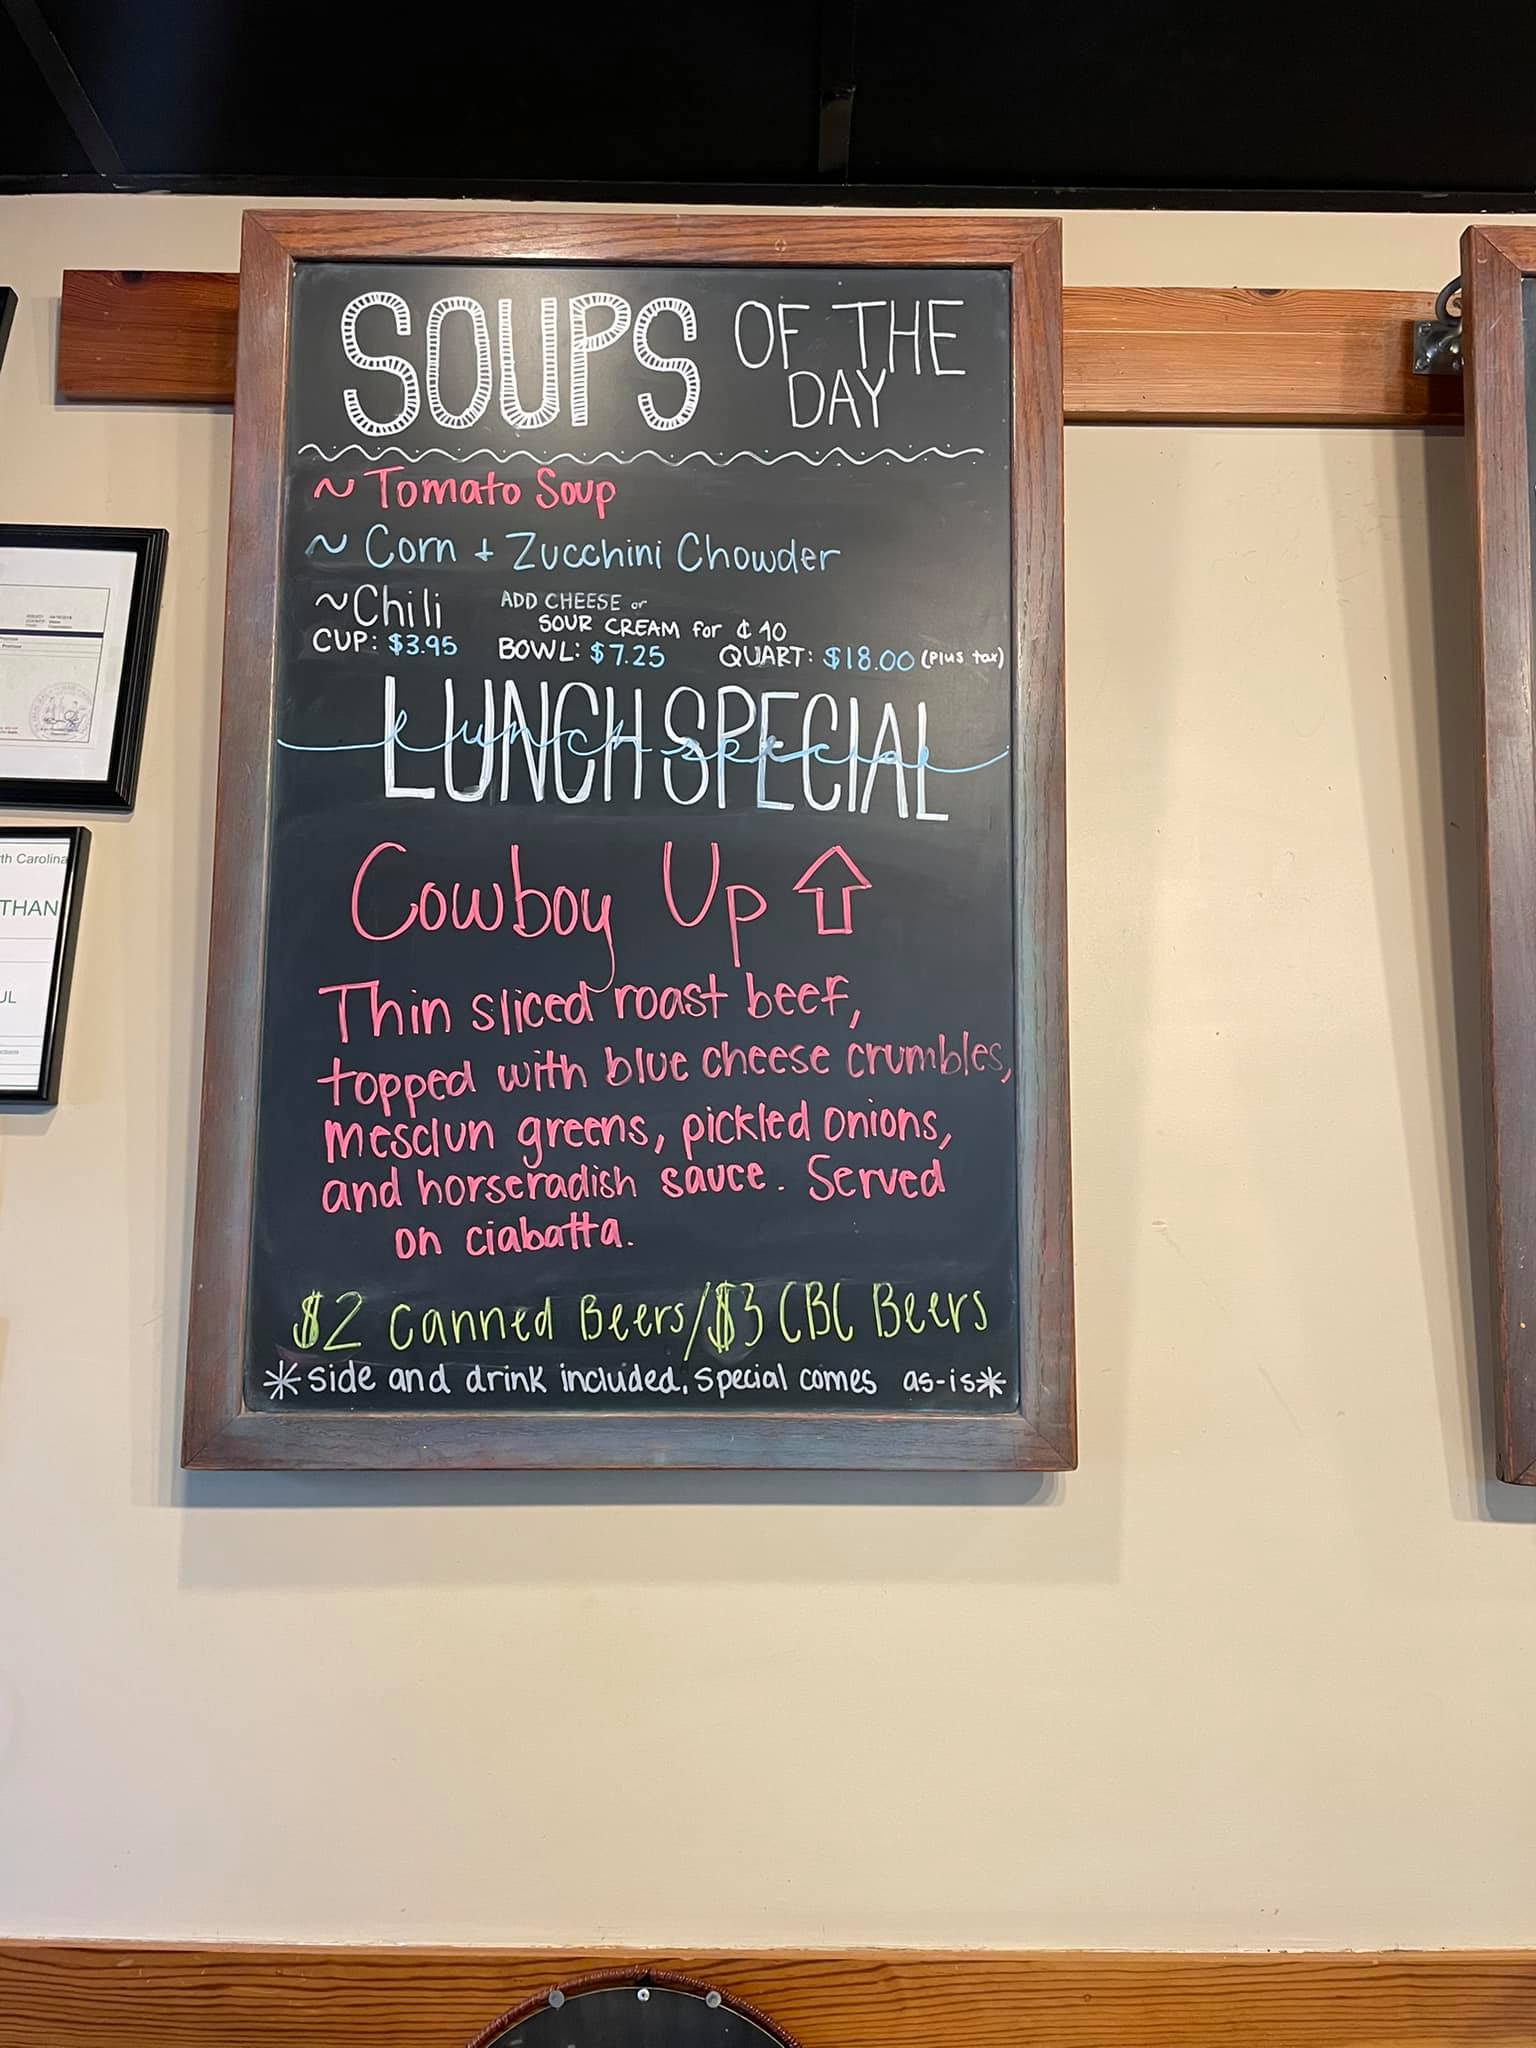 SOUPS OF THE DAY
~ Tomato Soup
~ Corn + Zucchini Chowder
~Chili ADD CHEESE or
SOUR CREAM for ¢ 40
CUP: $3.95 BOWL: $7.25 QUART: $18.00 (plus tax)
LUNCH SPECIAL
lunch special
Cowboy Up
Thin sliced roast beef,
topped with blue cheese crumbles,
mesclun greens, pickled onions,
and horseradish sauce. Served
on ciabatta.
$2 Canned Beers/$3 CBC Beers
*side and drink included, special comes as-is*
th Carolina
THAN
UL